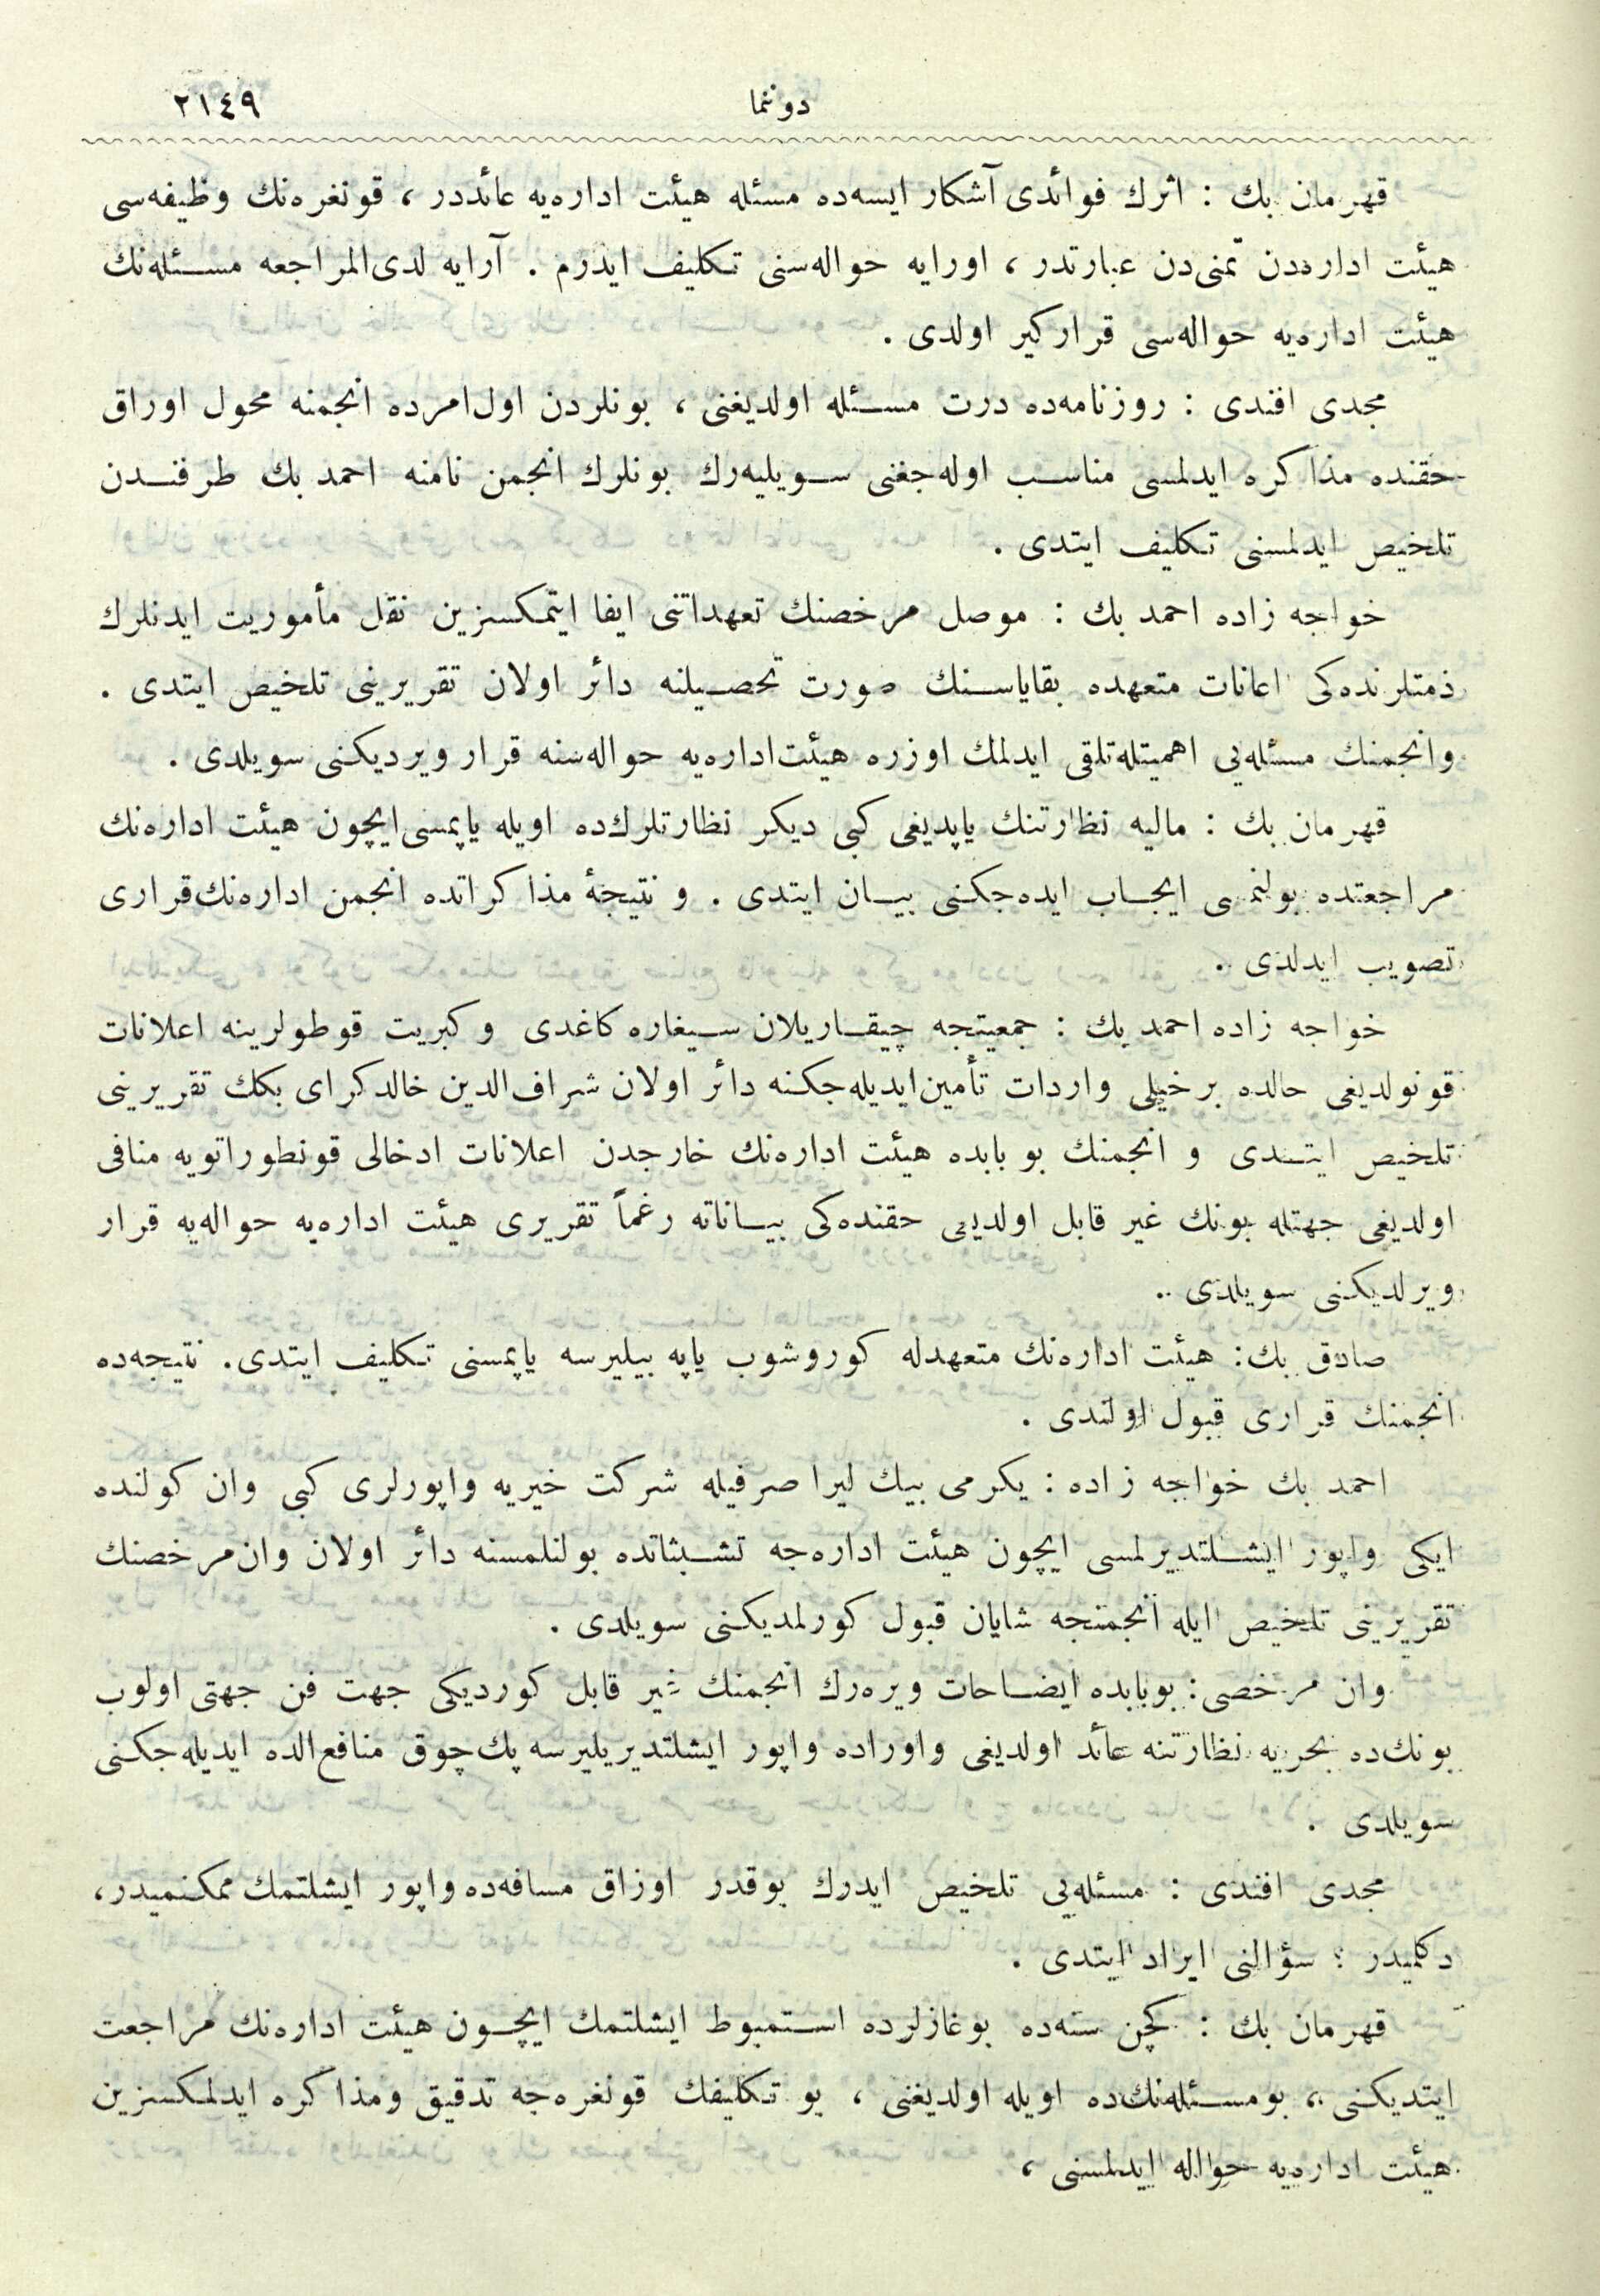 دوننما
٢١٤٩
قهرمان بك : اثرك فوائدى آشكار ايسه‌ده مسئله هيئت اداره‌يه عائددر ، قونغره‌نك وظيفه‌سى
هيئت اداره‌دن تمنى‌دن عبارتدر ، اورايه حواله‌سنى تكليف ايدرم . آرايه لدى‌المراجعه مسئله‌نك
هيئت اداره‌يه حواله‌سى قراركير اولدى .
مجدى افندى : روزنامه‌ده درت مسئله اولديغنى ، بونلردن اول‌امرده انجمنه محول اوراق
حقنده مذاكره ايدلمسى مناسب اوله‌جغنى سويليه‌رك بونلرك انجمن نامنه احمد بك طرفندن
تلخيص ايدلمسنى تكليف ايتدى .
خواجه زاده احمد بك : موصل مرخصنك تعهداتنى ايفا ايتمكسزين نقل مأموريت ايدنلرك
ذمتلرنده‌كى اعانات متعهده بقاياسنك صورت تحصيلنه دائر اولان تقريرينى تلخيص ايتدى .
وانجمنك مسئله‌يى اهميتله‌تلقى ايدلمك اوزره هيئت‌اداره‌يه حواله‌سنه قرار ويرديكنى سويلدى .
قهرمان بك : ماليه نظارتنك ياپديغى كبى ديكر نظارتلرك‌ده اويله ياپمسى‌ايچون هيئت اداره‌نك
مراجعتده بولنمسى ايجاب ايده‌جكنى بيان ايتدى . و نتيجهٔ مذاكراتده انجمن اداره‌نك‌قرارى
تصويب ايدلدى .
خواجه زاده احمد بك : جمعيتجه چيقاريلان سيغاره كاغدى و كبريت قوطولرينه اعلانات
قونولديغى حالده برخيلى واردات تأمين‌ايديله‌جكنه دائر اولان شراف‌الدين خالدكراى بكك تقريرينى
تلخيص ايتدى و انجمنك بو بابده هيئت اداره‌نك خارجدن اعلانات ادخالى قونطوراتويه منافى
اولديغى جهتله بونك غير قابل اولديغى حقنده‌كى بياناته رغماً تقريرى هيئت اداره‌يه حواله‌يه قرار
ويرلديكنى سويلدى ..
صادق بك: هيئت اداره‌نك متعهدله كوروشوب ياپه بيليرسه ياپمسنى تكليف ايتدى. نتيجه‌ده
انجمنك قرارى قبول اولندى .
احمد بك خواجه زاده : يكرمى بيك ليرا صرفيله شركت خيريه واپورلرى كبى وان كولنده
ايكى واپور ايشلتديرلمسى ايچون هيئت اداره‌جه تشبثاتده بولنلمسنه دائر اولان وان‌مرخصنك
تقريرينى تلخيص ايله انجمنجه شايان قبول كورلمديكنى سويلدى .
وان مرخصى: بوبابده ايضاحات ويره‌رك انجمنك غير قابل كورديكى جهت فن جهتى اولوب
بونك‌ده بحريه نظارتنه عائد اولديغى واوراده واپور ايشلتديريليرسه پك‌چوق منافع‌الده ايديله‌جكنى
سويلدى .
مجدى افندى : مسئله‌يى تلخيص ايدرك بوقدر اوزاق مسافه‌ده واپور ايشلتمك ممكنميدر،
دكلميدر ؛ سؤالنى ايراد ايتدى .
قهرمان بك : كچن سنه‌ده بوغازلرده استمبوط ايشلتمك ايچون هيئت اداره‌نك مراجعت
ايتديكنى ، بومسئله‌نك‌ده اويله اولديغنى ، بو تكليفك قونغره‌جه تدقيق ومذاكره ايدلمكسزين
هيئت اداره‌يه حواله ايدلمسنى ،